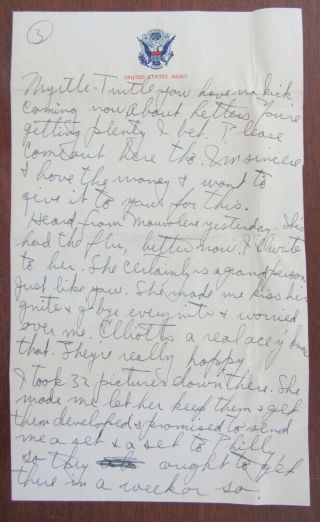 3
UNITED STATES ARMY
Myrtle-Turtle you have no kick
coming now about letters. You're
getting plenty I bet. Please
come out here tho. I'm sincere
I have the money & want to
give it to you for this.
Heard from yesterday. She
had the flu, better now. I'll write
to her. She certainly is a grand person
just like you. She made me kiss her
gnite & g-bye every nite & worried
over me. Elliott's a real acey
that. They're really happy
I took 32 pictures down there. She
made me let her keep them & get
them developed & promised to send
me a set & a set to Philly
so they ought to get
there in a week or so.